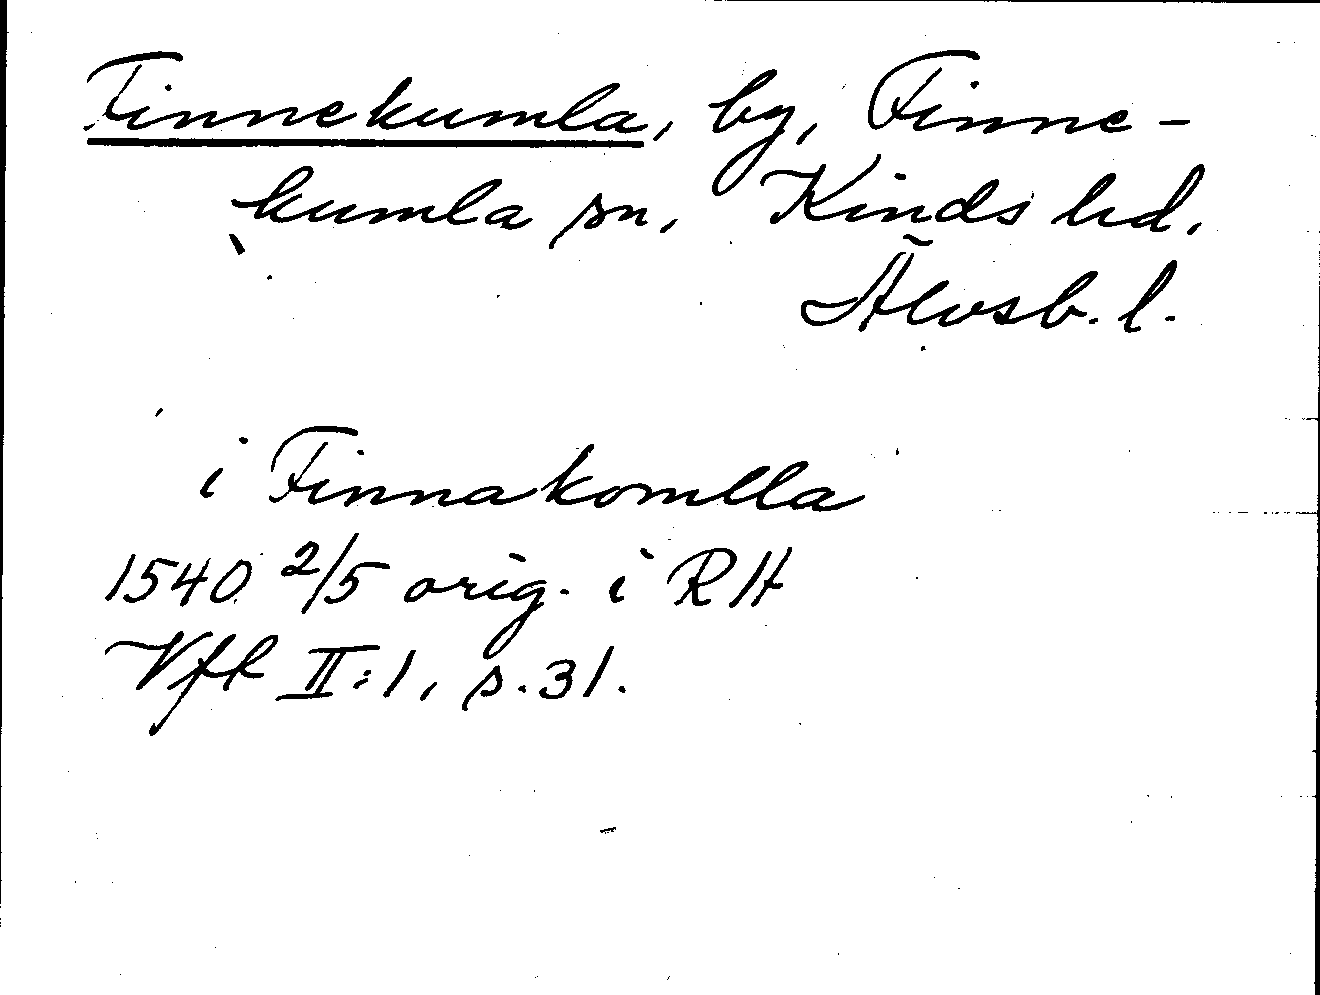 Finnekumla, by, Finne-
kumla sn, Kinds hd,
Älvsb. l.
i Finnakomlla
1540 2/5 orig. i RH
Vfk II:1, s. 31.